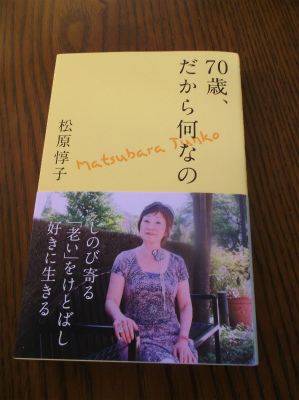 70歳、
だから何なの
松原惇子
Matsubara Junko
しのび寄る
「老い」をけとばし
好きに生きる